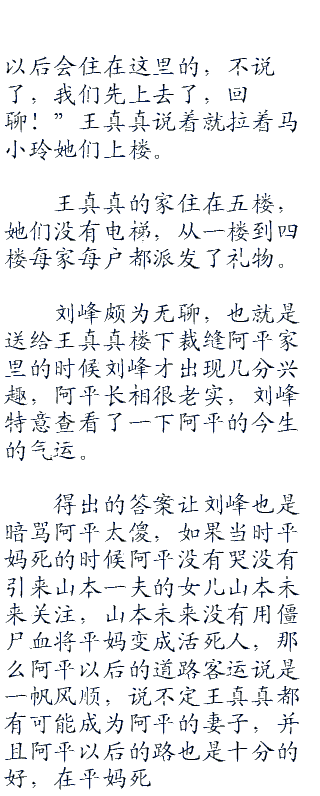 以后会住在这里的，不说
了，我们先上去了，回
聊！”王真真说着就拉着马
小玲她们上楼。
王真真的家住在五楼，
她们没有电梯，从一楼到四
楼每家每户都派发了礼物。
刘峰颇为无聊，也就是
送给王真真楼下裁缝阿平家
里的时候刘峰才出现几分兴
趣，阿平长相很老实，刘峰
特意查看了一下阿平的今生
的气运。
得出的答案让刘峰也是
暗骂阿平太傻，如果当时平
妈死的时候阿平没有哭没有
引来山本一夫的女儿山本未
来关注，山本未来没有用僵
尸血将平妈变成活死人，那
么阿平以后的道路客运说是
一帆风顺，说不定王真真都
有可能成为阿平的妻子，并
且阿平以后的路也是十分的
好，在平妈死